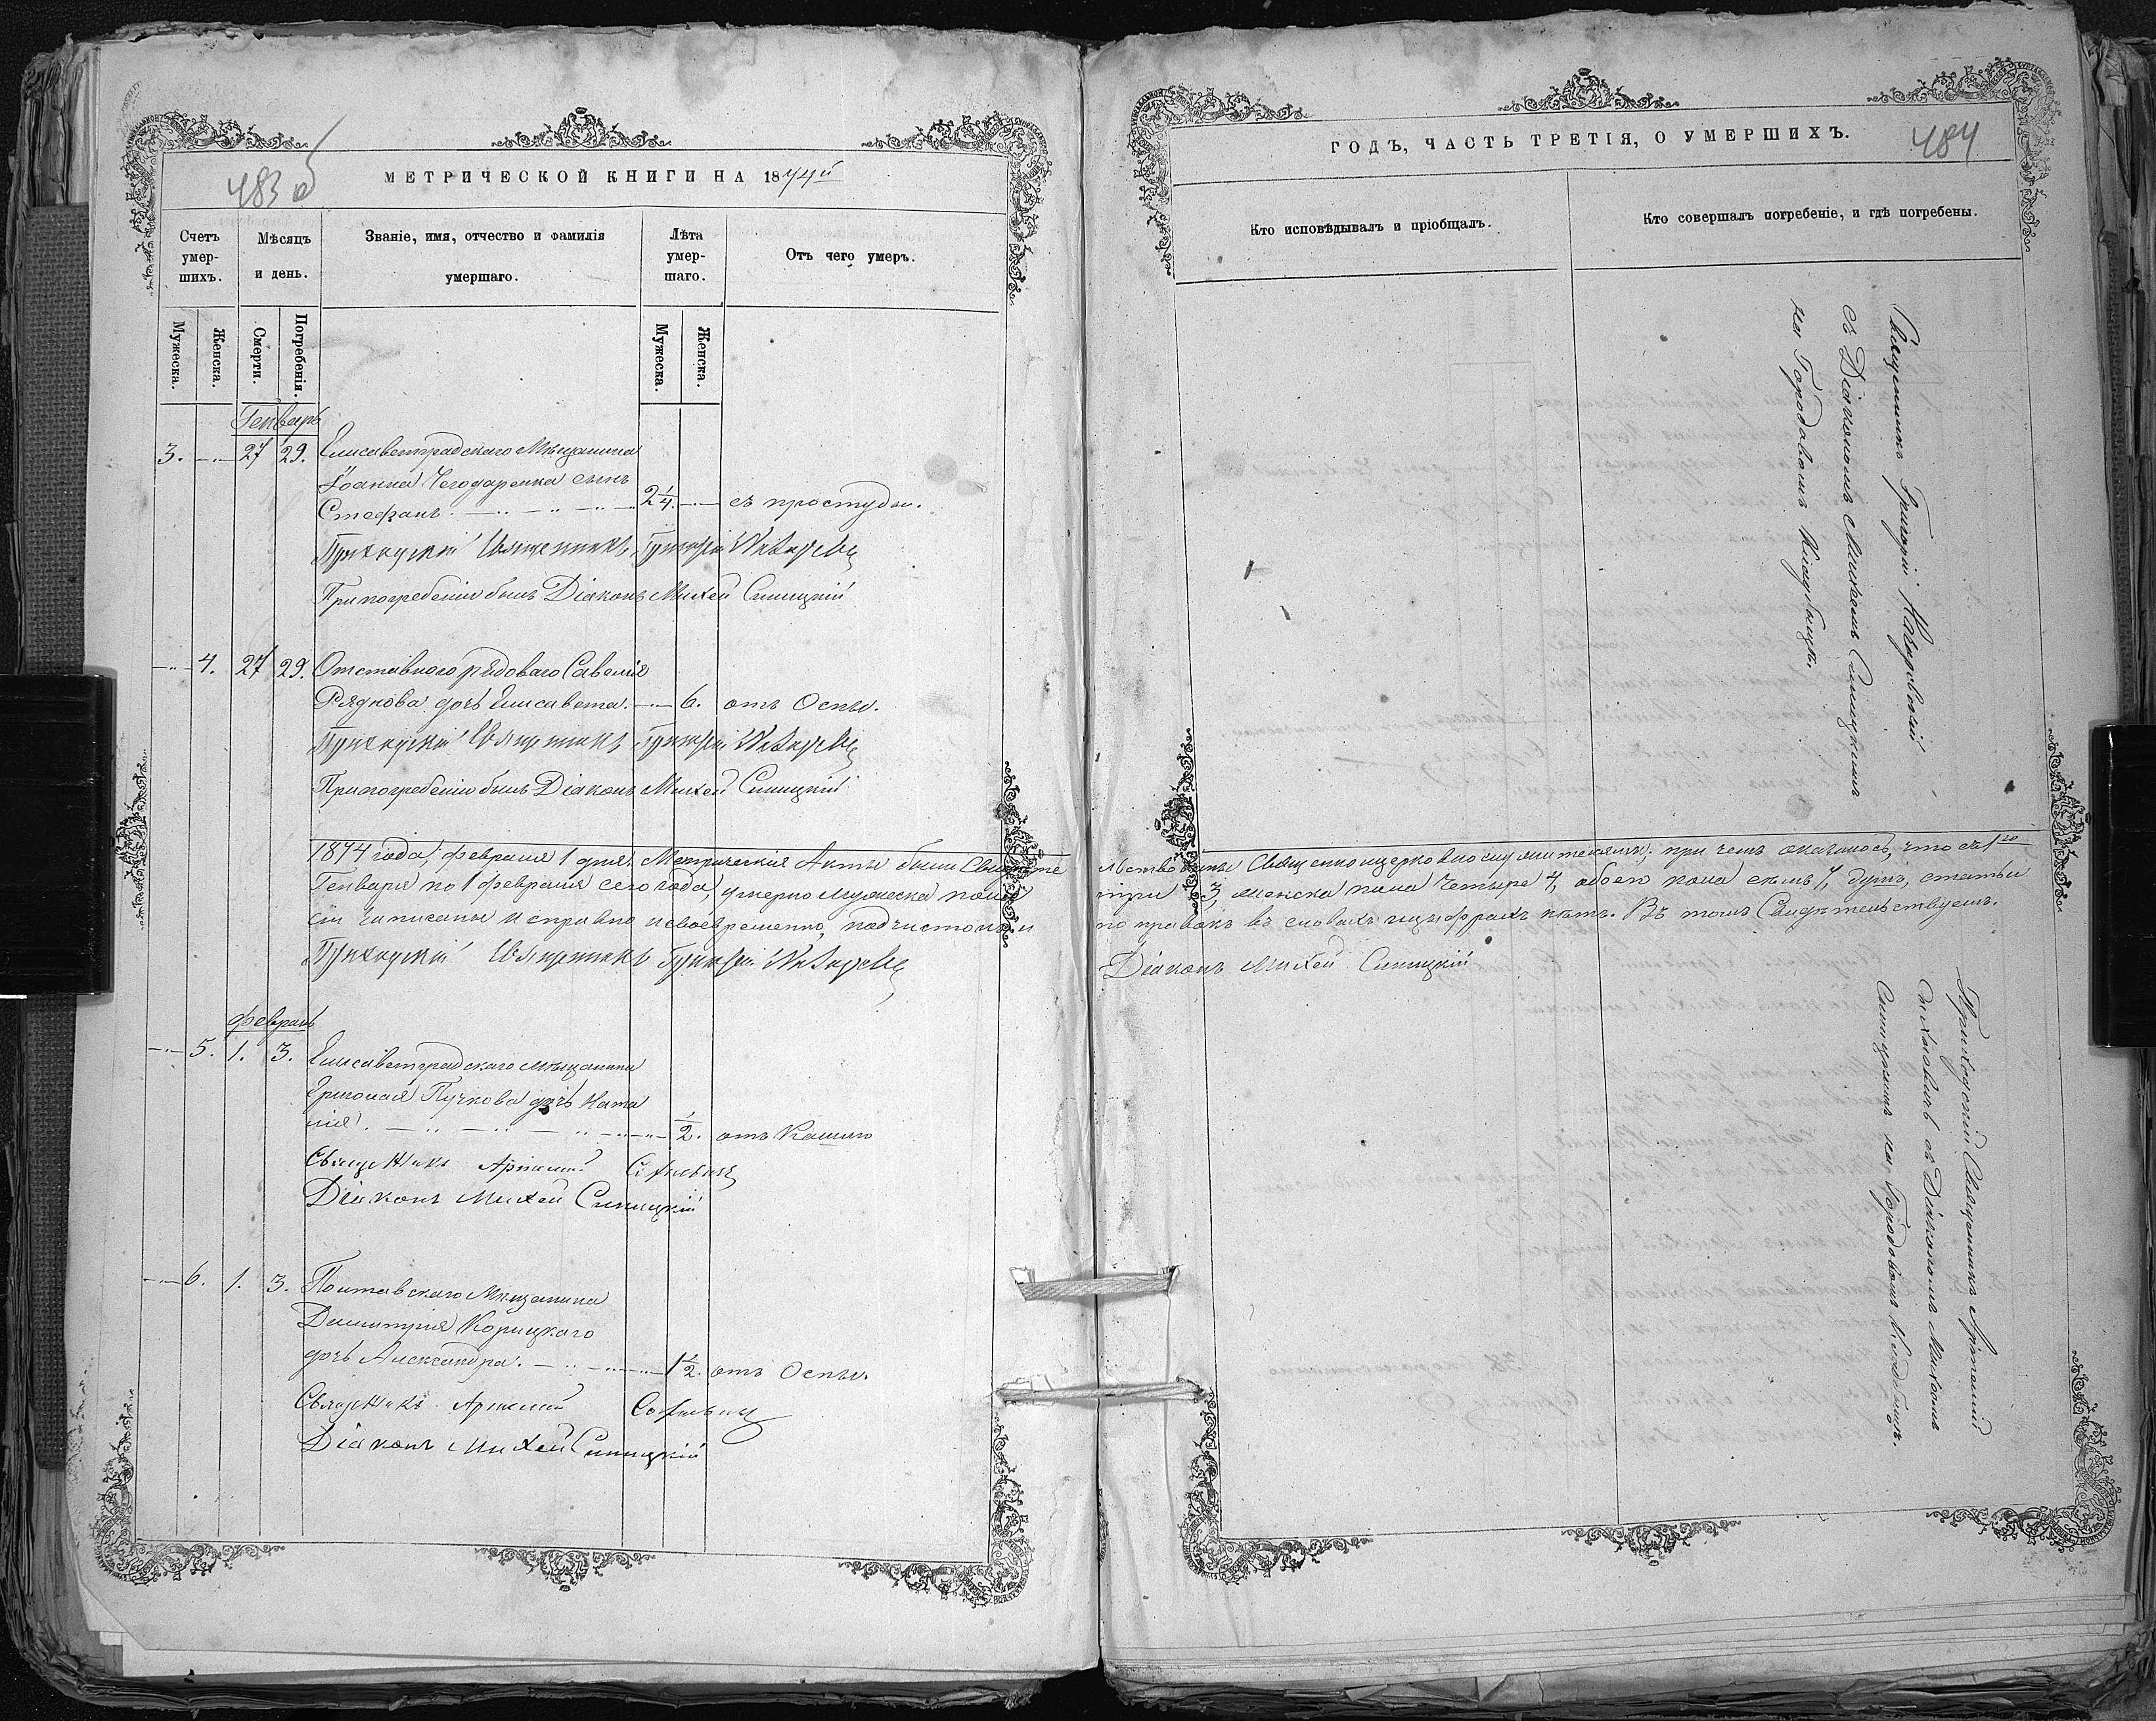 483 об
МЕТРИЧЕСКОЙ КНИГИ НА 1874й
Счетъ умер-шихъ.
Мѣсяцъ и день.
Званіе, имя, отчество и фамилія умершаго.
Лѣта умер-шаго.
Отъ чего умеръ.
Мужеска.
Женска.
Смерти.
Погребенія.
Мужеска.
Женска.
Генварь
3. 27 29. Елисаветградскаго Мѣщанина
Іоанна Чегодаренка сынъ
Стефанъ. 2 1/4. съ простуды.
Приходскій Священникъ Григорій
При погребеніи былъ Діаконъ Михей Синицкій
4. 27 29. Отставного рядоваго Савелія
Рядкова дочь Елисавета. 6. отъ Оспы.
Приходскій Священникъ Григорій
При погребеніи былъ Діаконъ Михей Синицкій
1874 года, февраля 1 дня, Метрическія Акты были Свидѣте
Генваря по 1 февраля сего года, умерло мужеска пола
сіи записаны исправно и своевременно, подчистокъ и
Приходскій Священникъ Григорій
Февраль
5. 1. 3. Елисаветградскаго мѣщанина
Ермолая Пучкова дочь Ната
лія. 1/2. отъ Кашлю
Священникъ Артемій
Діаконъ Михей Синицкій
6. 1. 3. Полтавскаго Мѣщанина
Димитрія Корицкаго
дочь Александра. 1 1/2. отъ Оспы.
Священникъ Артемій
Діаконъ Михей Синицкій
484
ГОДЪ, ЧАСТЬ ТРЕТІЯ, О УМЕРШИХЪ.
Кто исповѣдывалъ и пріобщалъ.
Кто совершалъ погребеніе, и гдѣ погребены.
Священникъ Григорій
съ Діакономъ Михеемъ Синицкимъ
на Городовомъ Кладбищѣ.
льствованы Священноцерковнослужителями; при чемъ оказалось, что съ 1го
три 3, женска пола четыре 4, обоего пола семь 7, душъ, статьи
по правокъ въ словахъ и цыфрахъ нѣтъ. Въ томъ Свидѣтельствуемъ.
Діаконъ Михей Синицкій
Приходскій Священникъ Артемій
съ Діакономъ Михеемъ
Синицкимъ на Городовомъ Кладбищѣ.